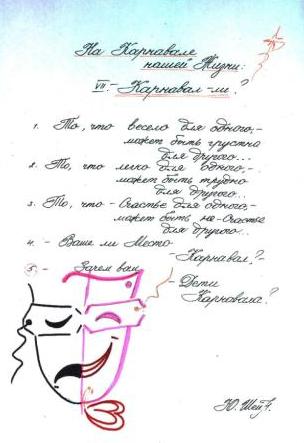 На Карнавале
нашей Жизни:
VII.- Карнавал-ли?
1. То, что весело для одного,-
может быть грустно
для другого...
2. То, что легко для одного,-
может быть трудно
для другого...
3. То, что - Счастье для одного,-
может быть не-Счастье
для другого...
4. - Ваше ли Место
- Карнавал?-
5. - Зачем вам,
- Дети
Карнавала?
Ю. Шей